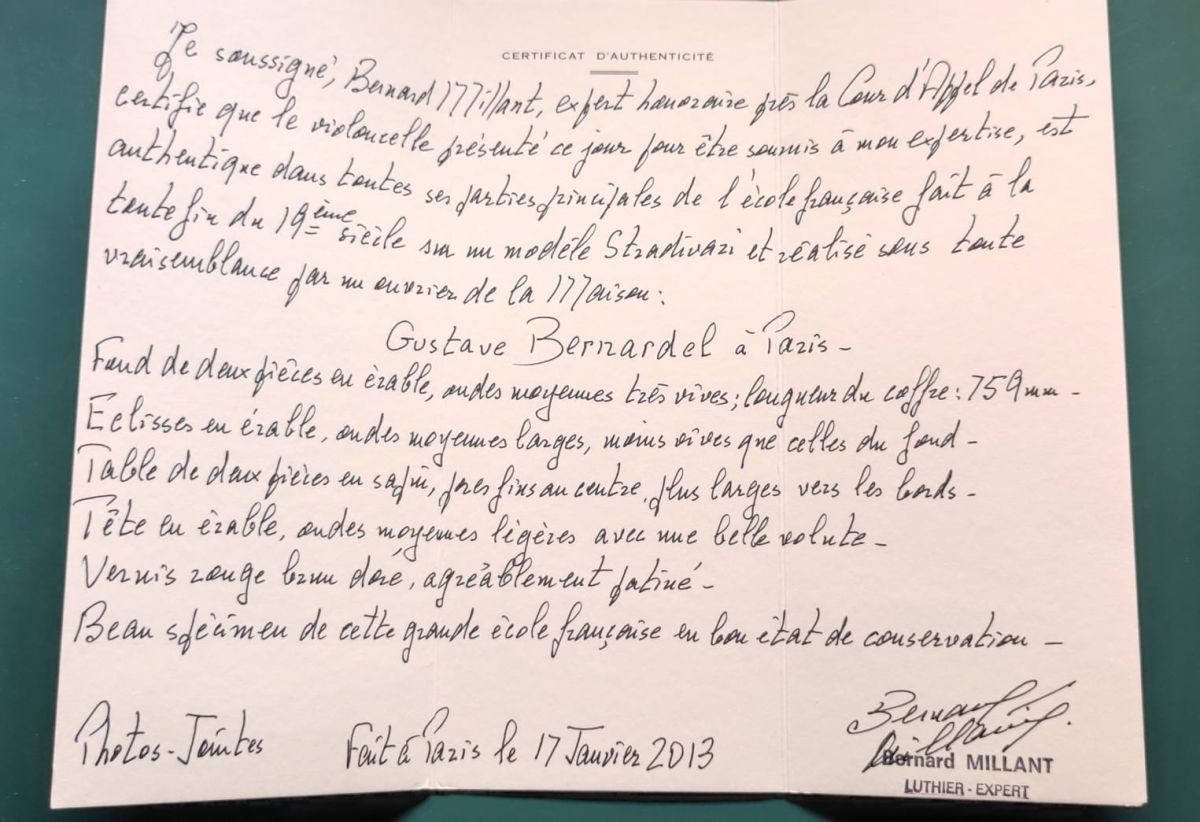 CERTIFICAT D'AUTHENTICITÉ
Je soussigné, Bernard Millant, expert honoraire près la Cour d'Appel de Paris,
certifie que le violoncelle présenté ce jour pour être soumis à mon expertise, est
authentique dans toutes ses parties principales de l'école française fait à la
toute fin du 19ème siècle sur un modèle Stradivari et réalisé sous toute
vraisemblance par un ouvrier de la Maison:
Gustave Bernardel à Paris -
Fond de deux pièces en érable, ondes moyennes très vives; longueur du coffre: 759 mm -
Eclisses en érable, ondes moyennes larges, moins vives que celles du fond -
Table de deux pièces en sapin, pores fins au centre, plus larges vers les bords -
Tête en érable, ondes moyennes légères avec une belle volute -
Vernis rouge brun doré, agréablement patiné -
Beau spécimen de cette grande école française en bon état de conservation -
Photos-Jointes Fait à Paris le 17 Janvier 2013
Bernard Millant
Bernard MILLANT
LUTHIER - EXPERT